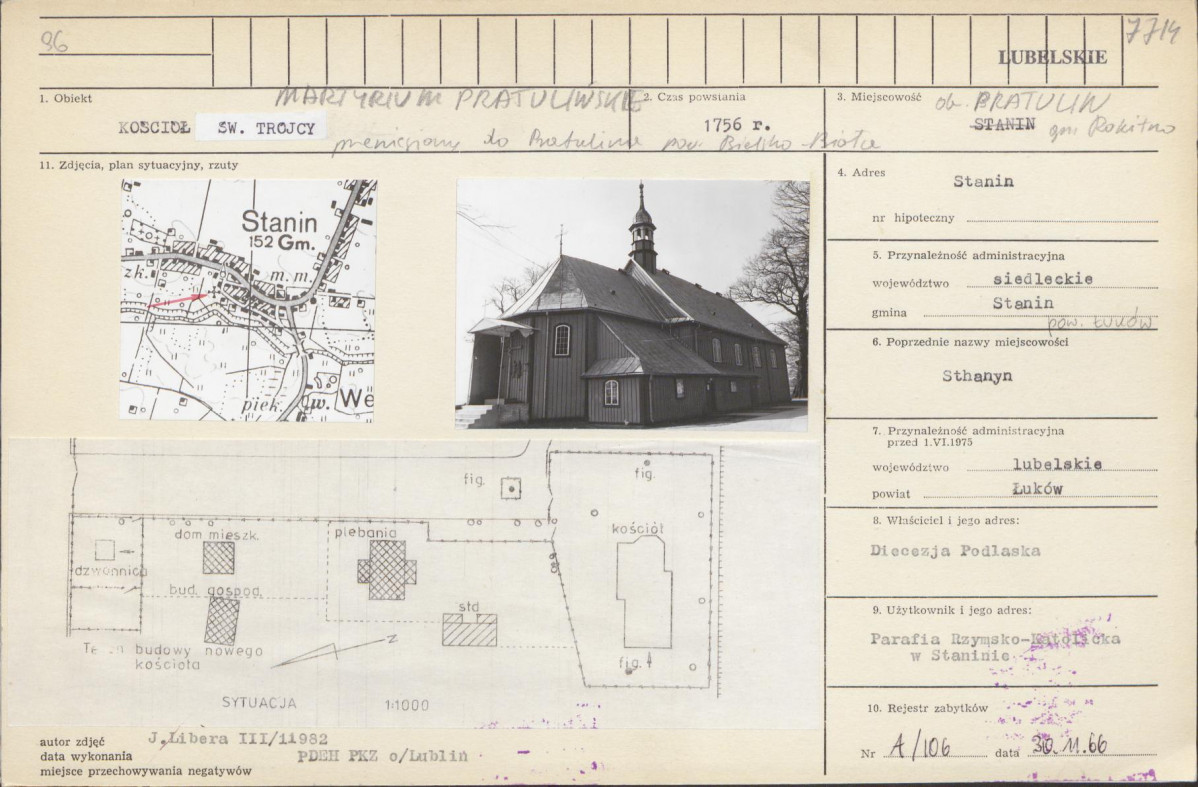 96
7714
LUBELSKIE
1. Obiekt
MARTYRIUM PRATULIŃSKIE
KOSCIÓŁ ŚW. TRÓJCY
przeniesiony do Pratulina pow. Bielsko-Biała
2. Czas powstania
1756 r.
3. Miejscowość
ob. PRATULIN
STANIN gm. Rokitno
11. Zdjęcia, plan sytuacyjny, rzuty
Stanin
152 Gm.
zk.
m.m.
piek.
w.
We
4. Adres
Stanin
nr hipoteczny
5. Przynależność administracyjna
województwo siedleckie
gmina Stanin
pow. Łuków
6. Poprzednie nazwy miejscowości
Sthanyn
7. Przynależność administracyjna
przed 1.VI.1975
województwo lubelskie
powiat Łuków
8. Właściciel i jego adres:
Diecezja Podlaska
9. Użytkownik i jego adres:
Parafia Rzymsko-Katolicka
w Staninie
10. Rejestr zabytków
Nr A/106 data 30.11.66
fig.
fig.
kościół
dom mieszk.
plebania
dzwonnica
bud. gospod.
std
N
Teren budowy nowego
kościoła
fig.
SYTUACJA 1:1000
autor zdjęć J.Libera III/11982
data wykonania PDEH PKZ o/Lublin
miejsce przechowywania negatywów